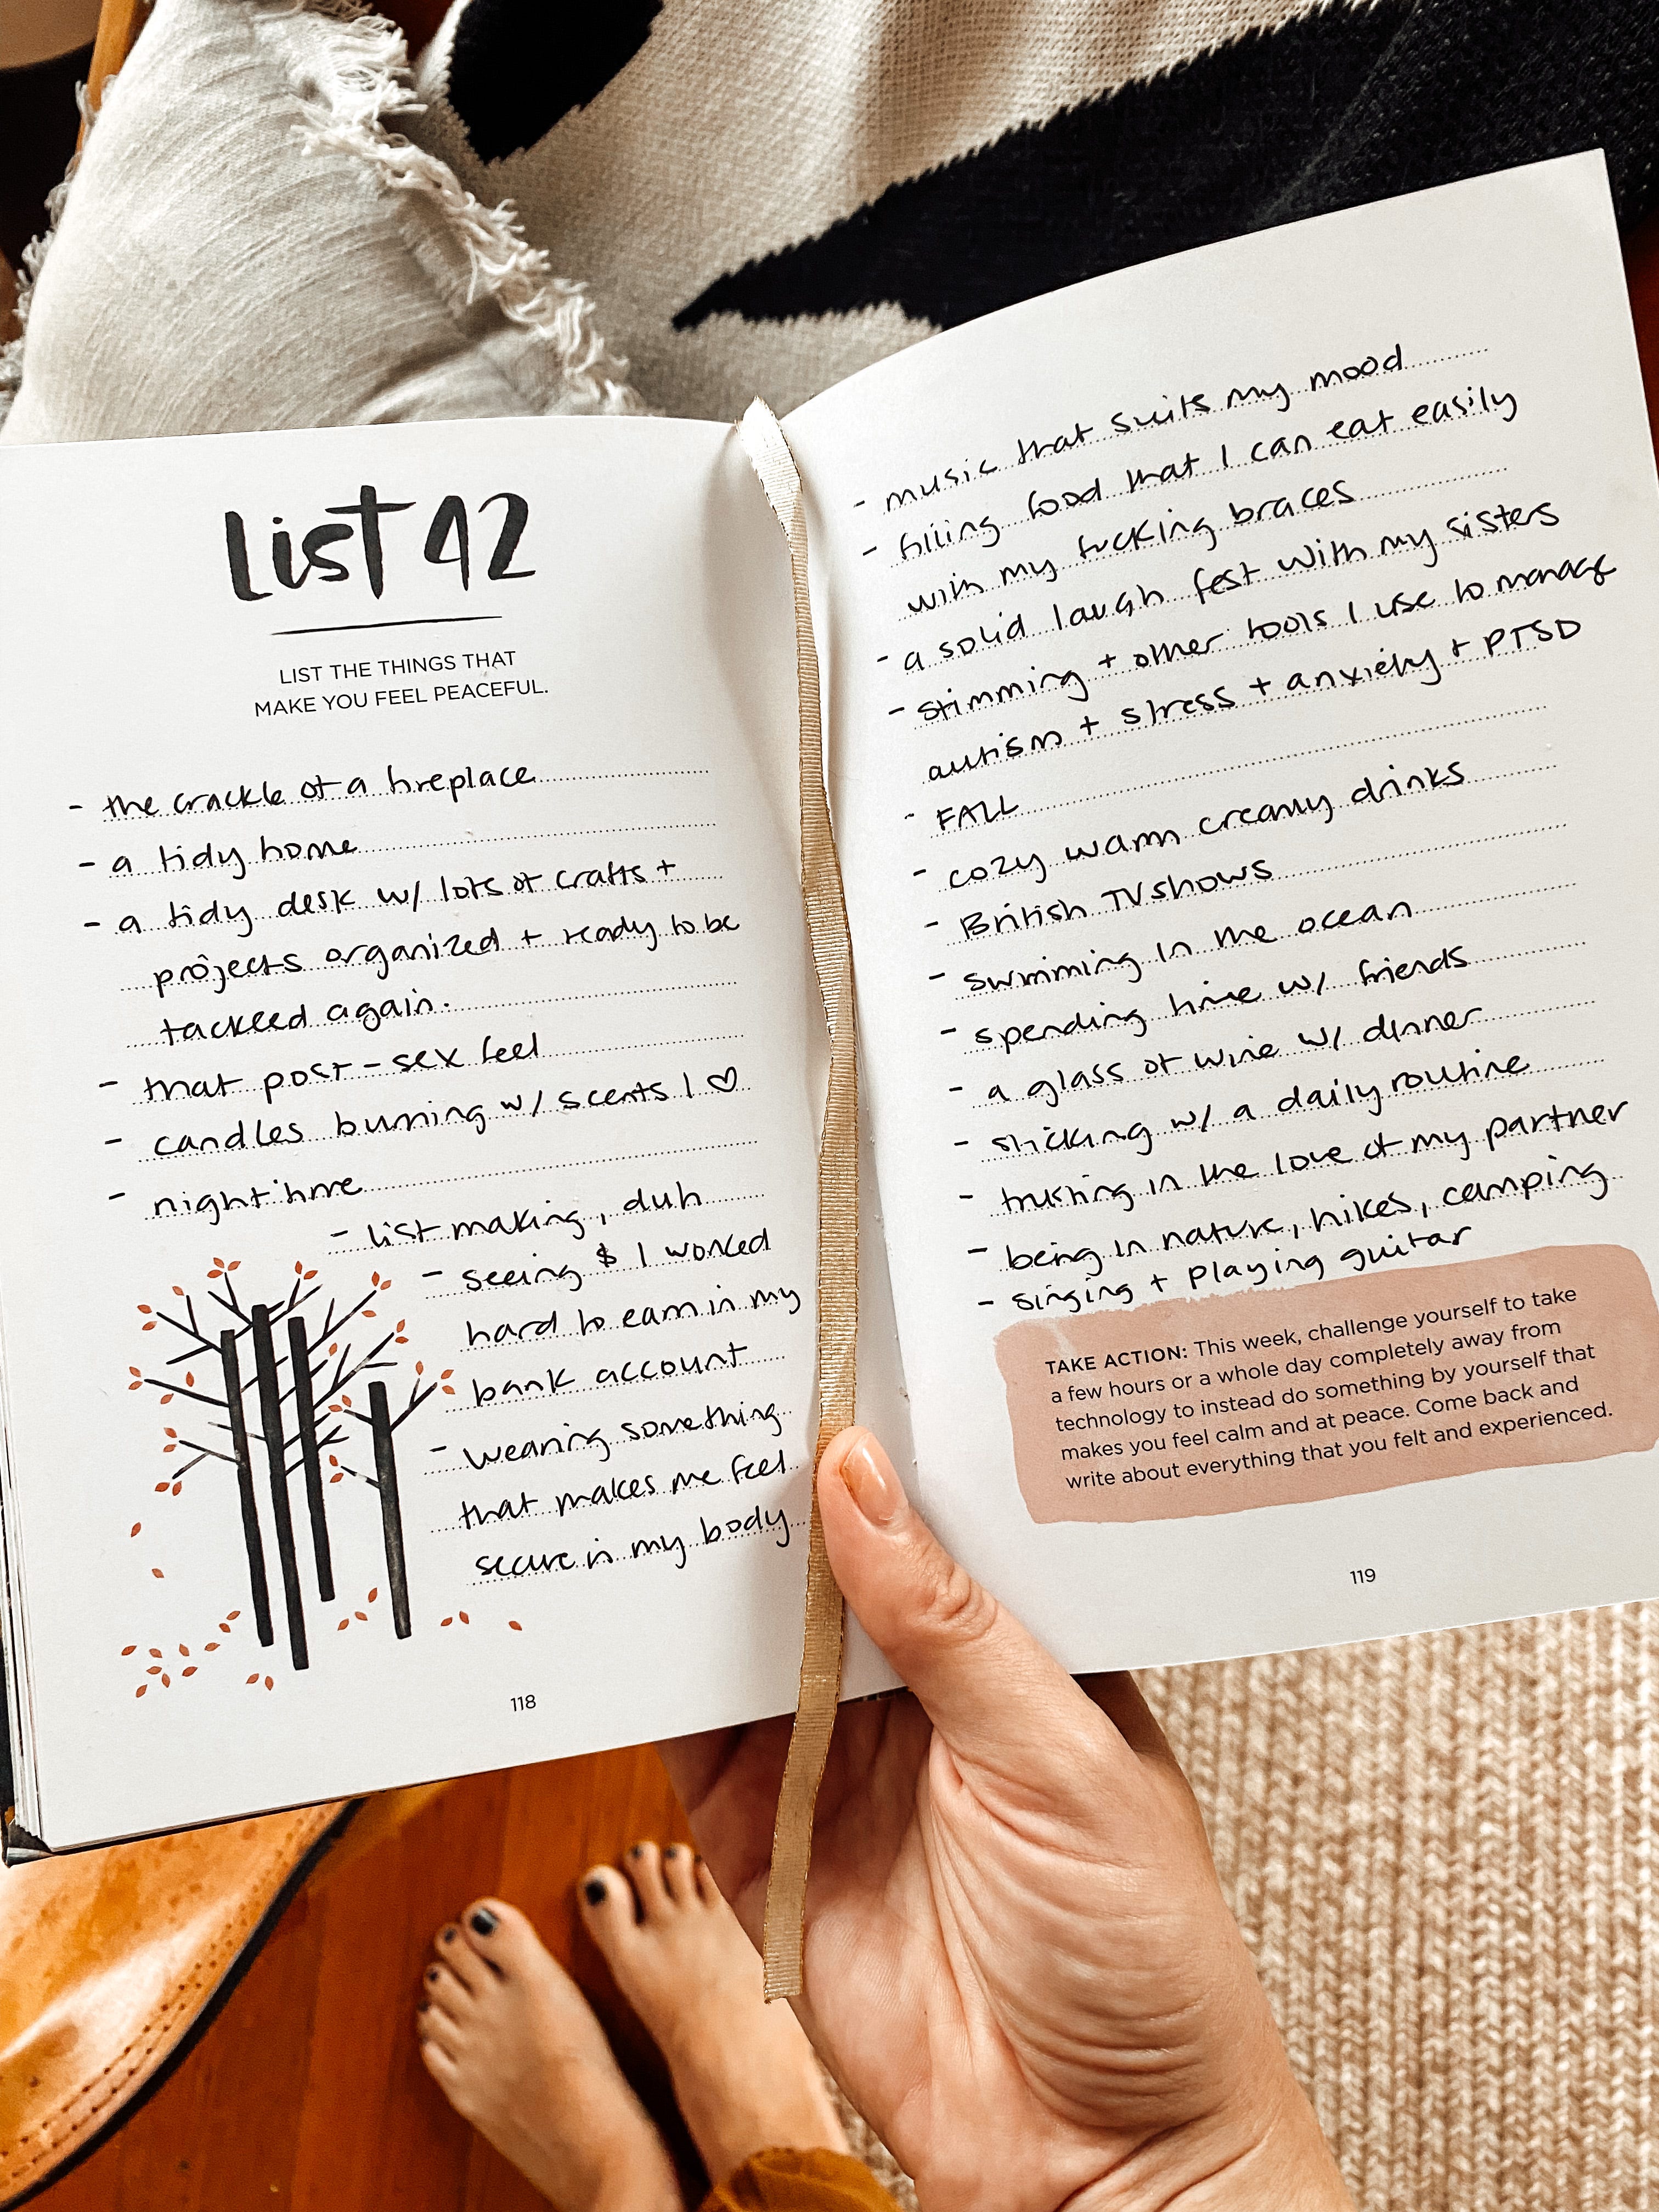 List 42
LIST THE THINGS THAT
MAKE YOU FEEL PEACEFUL.
- the crackle of a fireplace
- a tidy home
- a tidy desk w/ lots of crafts +
projects organized + ready to be
tackled again.
- that post-sex feel
- candles burning w/ scents I ♡
- night time
- list making, duh
- seeing $ I worked
hard to earn in my
bank account
- wearing something
that makes me feel
secure in my body
118
- music that suits my mood
- filling food that I can eat easily
with my fucking braces
- a solid laugh fest with my sisters
- stimming + other tools I use to manage
autism + stress + anxiety + PTSD
- FALL
- cozy warm creamy drinks
- British TV shows
- swimming in the ocean
- spending time w/ friends
- a glass of wine w/ dinner
- sticking w/ a daily routine
- trusting in the love of my partner
- being in nature, hikes, camping
- singing + playing guitar
TAKE ACTION: This week, challenge yourself to take
a few hours or a whole day completely away from
technology to instead do something by yourself that
makes you feel calm and at peace. Come back and
write about everything that you felt and experienced.
119